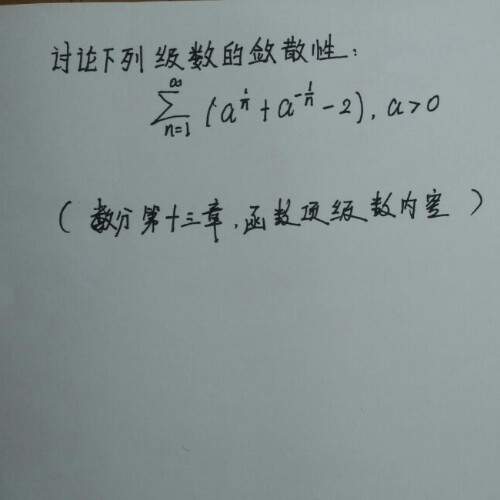 讨论下列级数的敛散性:
∑_{n=1}^{∞} (a^{1/n} + a^{-1/n} - 2), a>0
(数分第十三章,函数项级数内容)